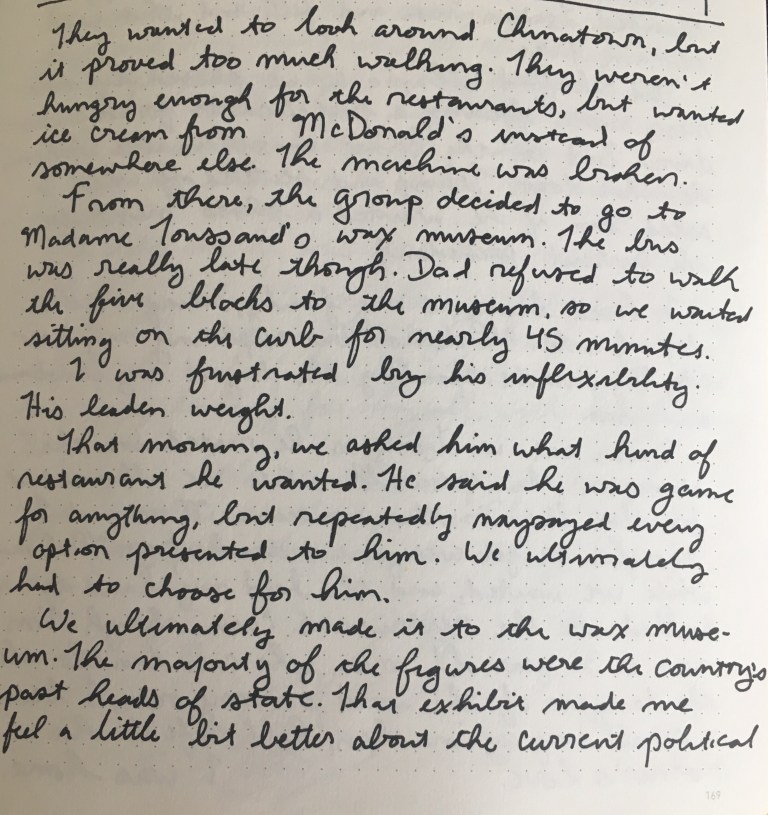 They wanted to look around Chinatown, but
it proved too much walking. They weren't
hungry enough for the restaurants, but wanted
ice cream from McDonald's instead of
somewhere else. The machine was broken.
From there, the group decided to go to
Madame Toussand's wax museum. The bus
was really late though. Dad refused to walk
the five blocks to the museum, so we waited
sitting on the curb for nearly 45 minutes.
I was frustrated by his inflexibility.
His leaden weight.
That morning, we asked him what kind of
restaurant he wanted. He said he was game
for anything, but repeatedly naysayed every
option presented to him. We ultimately
had to choose for him.
We ultimately made it to the wax muse-
um. The majority of the figures were the country's
past heads of state. That exhibit made me
feel a little bit better about the current political
169